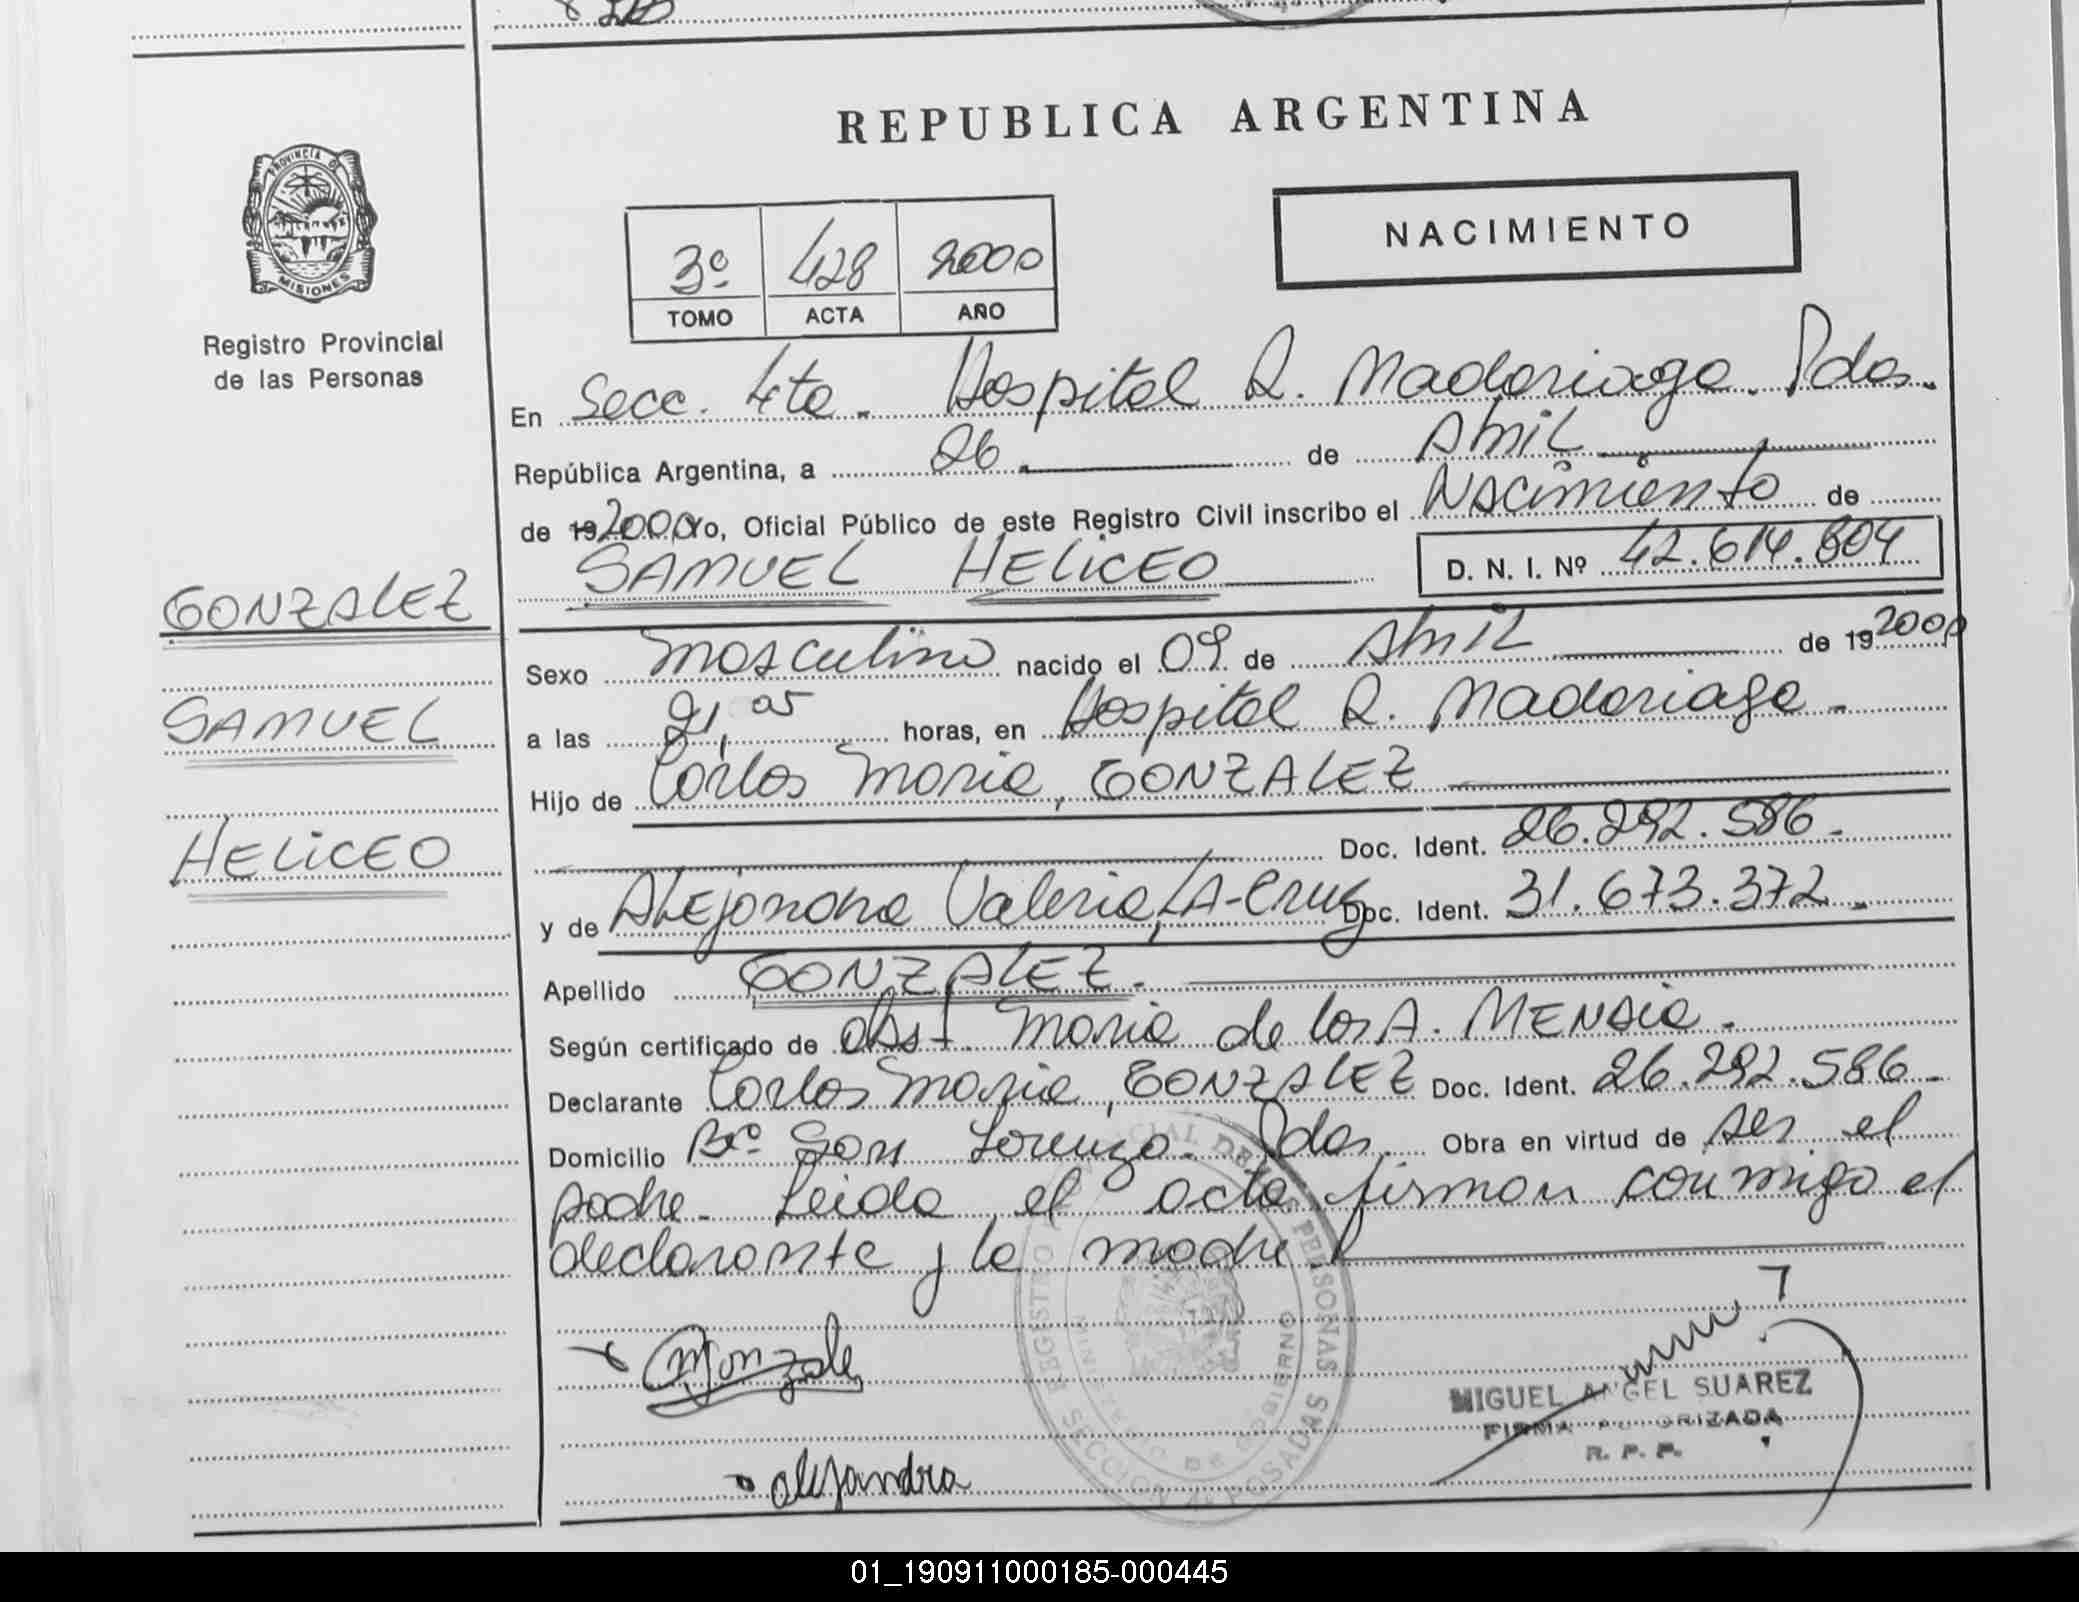 REPUBLICA ARGENTINA
PROVINCIA DE
MISIONES
Registro Provincial
de las Personas
NACIMIENTO
3º 428 2000
TOMO ACTA AÑO
En Secc. 4ta. Hospital R. Madariaga. Pdas.
República Argentina, a 26 de Abril
de 192000 Yo, Oficial Público de este Registro Civil inscribo el Nacimiento de
SAMUEL HELICEO D. N. I. Nº 42.614.804
GONZALEZ
SAMUEL
HELICEO
Sexo masculino nacido el 09 de Abril de 192000
a las 21,05 horas, en Hospital R. Madariaga.
Hijo de Carlos Maria, GONZALEZ
Doc. Ident. 26.292.586.
y de ALEjandra Valeria, LA-Cruz Doc. Ident. 31.673.372.
Apellido GONZALEZ.
Según certificado de obst. Maria de los A. MENDIA.
Declarante Carlos Maria, GONZALEZ Doc. Ident. 26.292.586.
Domicilio Bº San Lorenzo. Pdas. Obra en virtud de ser el
padre. Leida el acta firman conmigo el
declarante y la madre
alejandra
REGISTRO PROVINCIAL DE LAS PERSONAS
MINISTERIO DE GOBIERNO
SECCION 4º POSADAS
MIGUEL ANGEL SUAREZ
FIRMA AUTORIZADA
R. P. P.
01_190911000185-000445